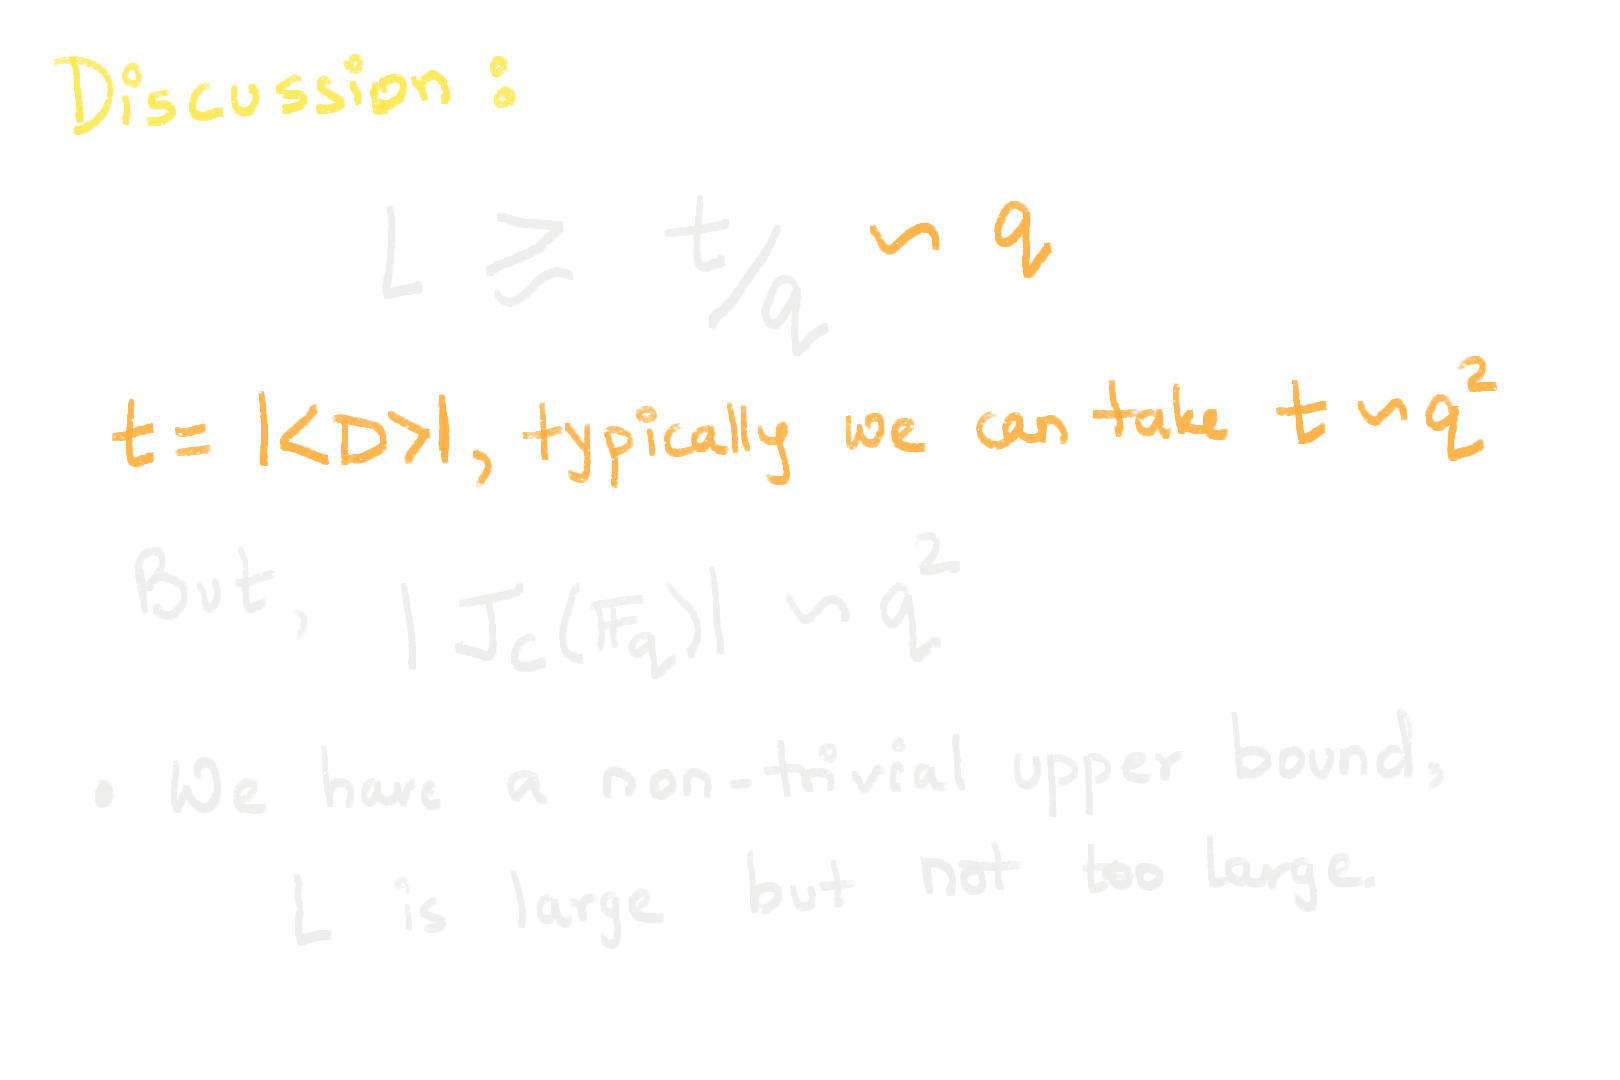 Discussion :
L ≳ t/q ~ q
t = |<D>|, typically we can take t ~ q²
But, |J_C(𝔽_q)| ~ q²
• We have a non-trivial upper bound,
L is large but not too large.